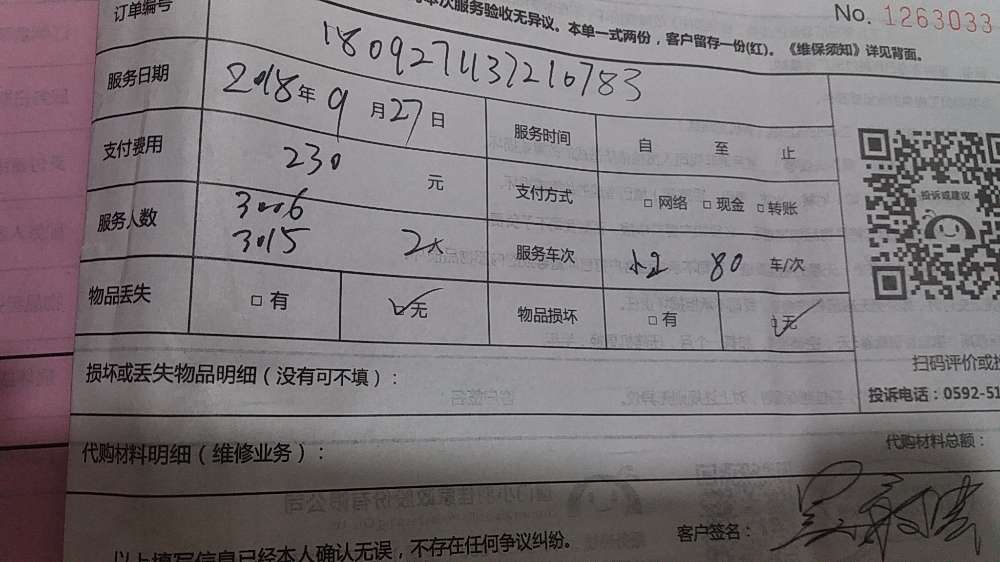 订单编号
本次服务验收无异议。本单一式两份，客户留存一份(红)。《维保须知》详见背面。
No. 1263033
180927113721​0783
服务日期 2018年9月27日 服务时间 自 至 止
支付费用 230 元 支付方式 □网络 □现金 □转账
服务人数 3006
3015 2人 服务车次 80 车/次
投诉或建议
物品丢失 □有 ☑无 物品损坏 □有 ☑无
扫码评价或
损坏或丢失物品明细（没有可不填）：
投诉电话：0592-51
代购材料明细（维修业务）：
代购材料总额：
客户签名：
以上填写信息已经本人确认无误，不存在任何争议纠纷。